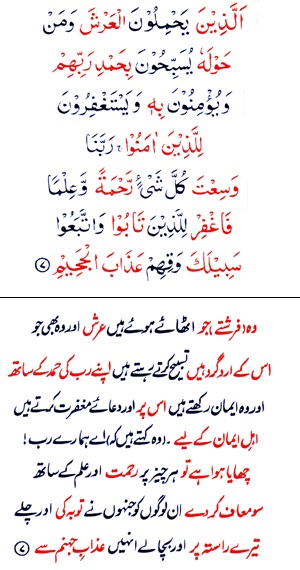 اَلَّذِیْنَ یَحْمِلُوْنَ الْعَرْشَ وَمَنْ
حَوْلَهٗ یُسَبِّحُوْنَ بِحَمْدِ رَبِّهِمْ
وَیُؤْمِنُوْنَ بِهٖ وَیَسْتَغْفِرُوْنَ
لِلَّذِیْنَ اٰمَنُوْا ۚ رَبَّنَا
وَسِعْتَ كُلَّ شَیْءٍ رَّحْمَةً وَّعِلْمًا
فَاغْفِرْ لِلَّذِیْنَ تَابُوْا وَاتَّبَعُوْا
سَبِیْلَكَ وَقِهِمْ عَذَابَ الْجَحِیْمِ ﴿۷﴾
وہ (فرشتے) جو اٹھائے ہوئے ہیں عرش اور وہ بھی جو
اس کے ارد گرد ہیں تسبیح کرتے رہتے ہیں اپنے رب کی حمد کے ساتھ
اور وہ ایمان رکھتے ہیں اس پر اور دعائے مغفرت کرتے ہیں
اہلِ ایمان کے لیے۔ (وہ کہتے ہیں کہ) اے ہمارے رب!
چھایا ہوا ہے تو ہر چیز پر رحمت اور علم کے ساتھ
سو معاف کر دے ان لوگوں کو جنہوں نے توبہ کی اور چلے
تیرے راستہ پر اور بچالے انہیں عذابِ جہنم سے ﴿۷﴾